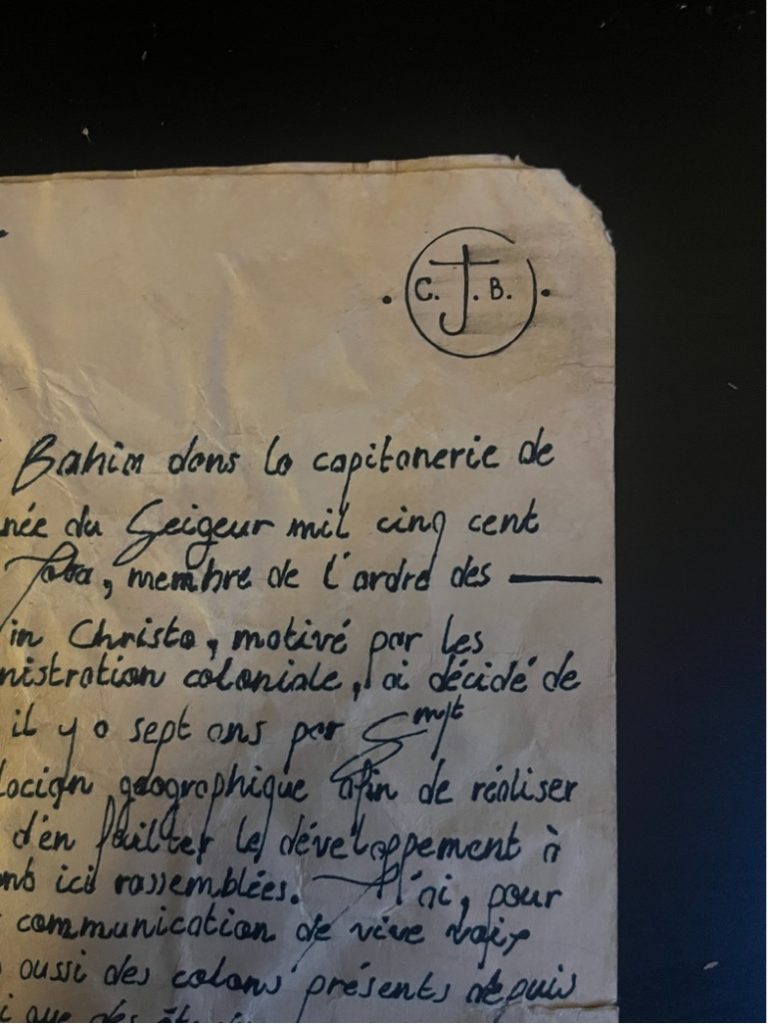 C. J. B.
Bahia dans la capitanerie de
née du Seigeur mil cinq cent
membre de l'ordre des —
in Christo, motivé par les
nistration coloniale, ai décidé de
il y a sept ans par
géographique afin de réaliser
d'en le développement à
ont ici rassemblées. J'ai, pour
communication de vive voix
aussi des colons présents depuis
i que des